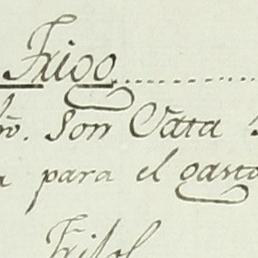 Trigo
ro. Son Cata
para el gasto
Frisol